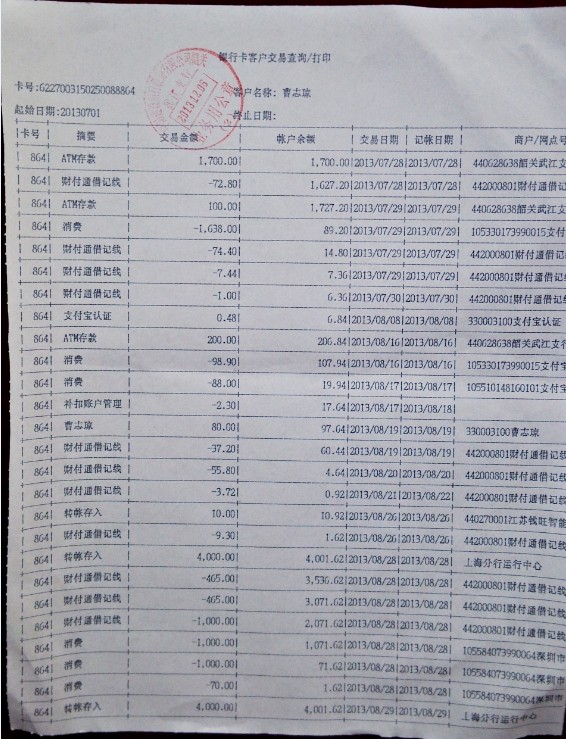 银行卡客户交易查询/打印
卡号:6227003150250088864 客户名称: 曹志琼
起始日期:20130701 终止日期:
2013.12.05
卡号 摘要 交易金额 帐户余额 交易日期 记帐日期 商户/网点号
864 ATM存款 1,700.00 1,700.00 2013/07/28 2013/07/28 440628638韶关武江支
864 财付通借记线 -72.80 1,627.20 2013/07/28 2013/07/28 442000801财付通借记
864 ATM存款 100.00 1,727.20 2013/07/29 2013/07/29 440628638韶关武江支
864 消费 -1,638.00 89.20 2013/07/29 2013/07/29 105330173990015支付
864 财付通借记线 -74.40 14.80 2013/07/29 2013/07/29 442000801财付通借记
864 财付通借记线 -7.44 7.36 2013/07/29 2013/07/29 442000801财付通借记
864 财付通借记线 -1.00 6.36 2013/07/30 2013/07/30 442000801财付通借记线
864 支付宝认证 0.48 6.84 2013/08/08 2013/08/08 330003100支付宝认证
864 ATM存款 200.00 206.84 2013/08/16 2013/08/16 440628638韶关武江支行
864 消费 -98.90 107.94 2013/08/16 2013/08/16 105330173990015支付宝
864 消费 -88.00 19.94 2013/08/17 2013/08/17 105510148160101支付宝
864 补扣账户管理 -2.30 17.64 2013/08/17 2013/08/18
864 曹志琼 80.00 97.64 2013/08/19 2013/08/19 330003100曹志琼
864 财付通借记线 -37.20 60.44 2013/08/19 2013/08/19 442000801财付通借记线
864 财付通借记线 -55.80 4.64 2013/08/20 2013/08/20 442000801财付通借记线
864 财付通借记线 -3.72 0.92 2013/08/21 2013/08/22 442000801财付通借记线
864 转帐存入 10.00 10.92 2013/08/26 2013/08/26 440270001江苏钱旺智能
864 财付通借记线 -9.30 1.62 2013/08/26 2013/08/26 442000801财付通借记线
864 转帐存入 4,000.00 4,001.62 2013/08/28 2013/08/28 上海分行运行中心
864 财付通借记线 -465.00 3,536.62 2013/08/28 2013/08/28 442000801财付通借记线
864 财付通借记线 -465.00 3,071.62 2013/08/28 2013/08/28 442000801财付通借记线
864 财付通借记线 -1,000.00 2,071.62 2013/08/28 2013/08/28 442000801财付通借记线
864 消费 -1,000.00 1,071.62 2013/08/28 2013/08/28 105584073990064深圳市
864 消费 -1,000.00 71.62 2013/08/28 2013/08/28 105584073990064深圳市
864 消费 -70.00 1.62 2013/08/28 2013/08/28 105584073990064深圳市
864 转帐存入 4,000.00 4,001.62 2013/08/29 2013/08/29 上海分行运行中心